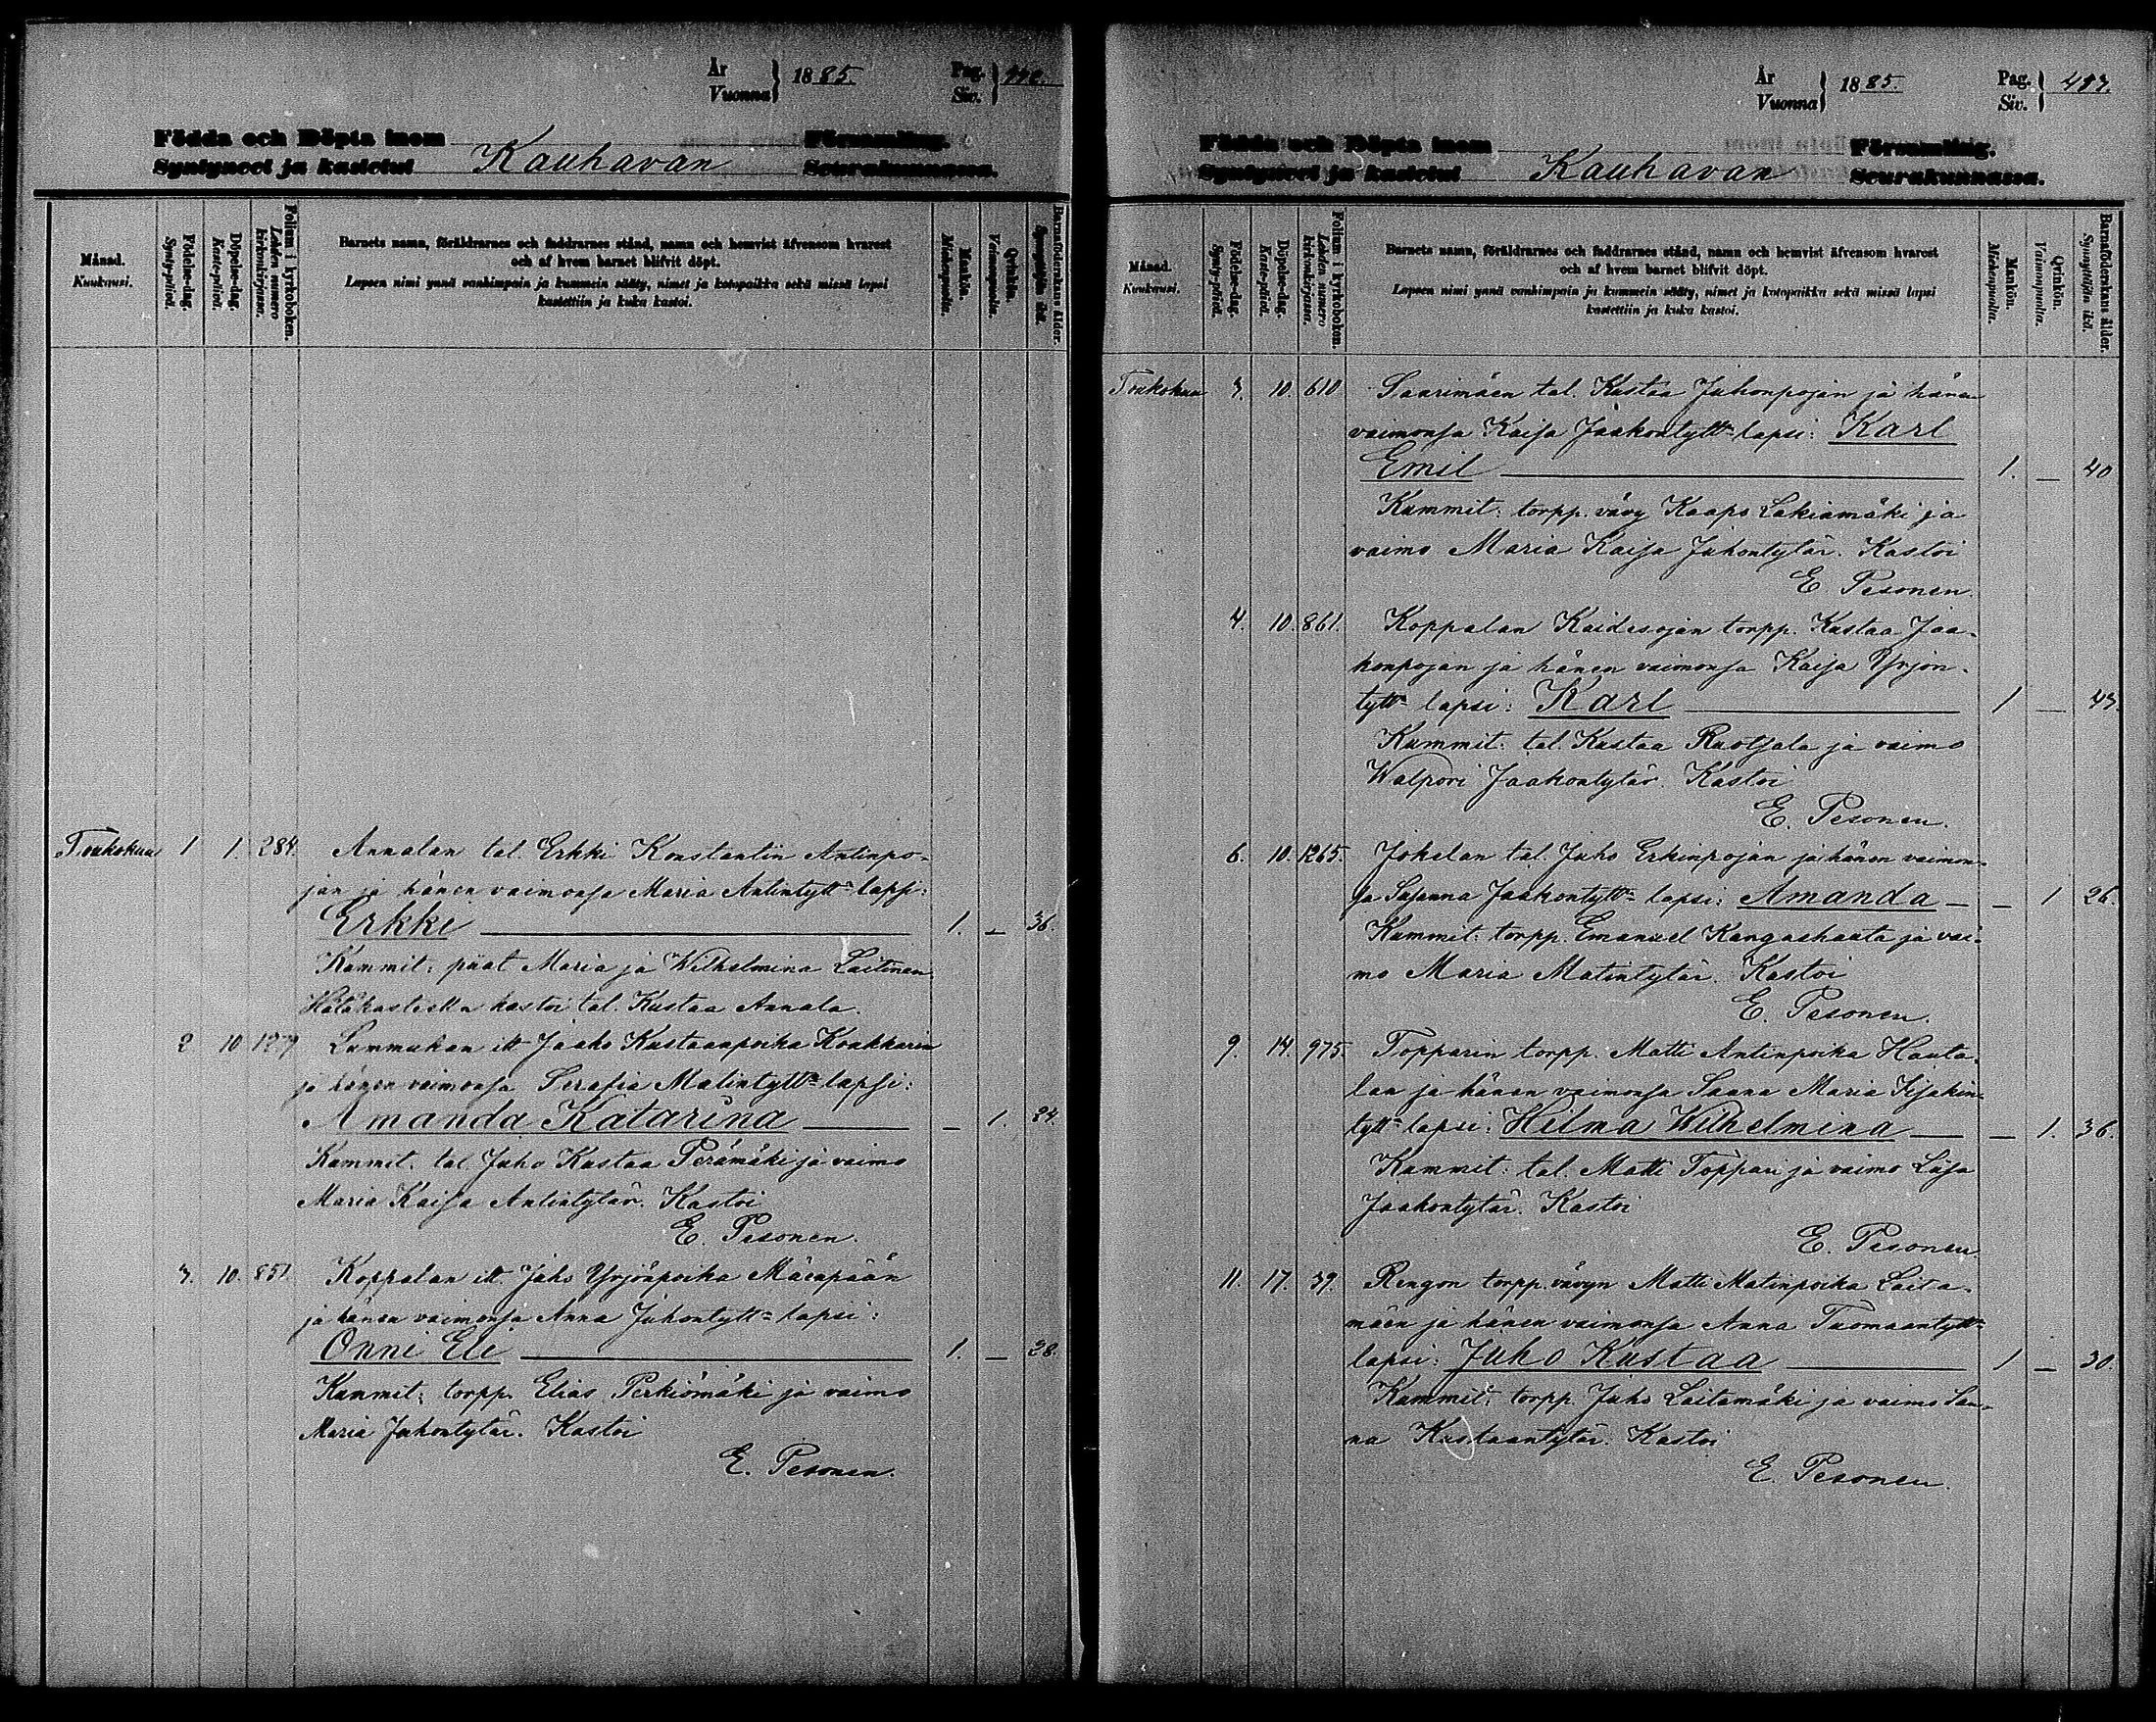 År
Vuonna } 1885.
Pag.
Siv. }
Födda och Döpta inom Församling.
Syntyneet ja kastetut Kauhavan Seurakunnassa.
Månad.
Kuukausi.
Födelse-dag.
Synty-päivä.
Döpelse-dag.
Kaste-päivä.
Folium i kyrkoboken.
Lehden numero kirkonkirjassa.
Barnets namn, föräldrarnes och faddrarnes stånd, namn och hemvist äfvensom hvarest
och af hvem barnet blifvit döpt.
Lapsen nimi ynnä vanhimpain ja kummein sääty, nimet ja kotopaikka sekä missä lapsi
kastettiin ja kuka kastoi.
Mankön.
Miehenpuolia.
Qvinkön.
Vaimonpuolia.
Barnaföderskans ålder.
Synnyttäjän ikä.
Toukokuu 1 1. 284. Annalan tal. Erkki Konstantin Antinpo-
jan ja hänen vaimonsa Maria Antintytt= lapsi:
Erkki 1. — 36.
Kummit: piiat Maria ja Wilhelmina Laitinen.
Hätäkasteella kastoi tal. Kustaa Annala.
2 10 1279 Lummukan itt Jaako Kustaanpoika Knakkarin
ja hänen vaimonsa Serafia Matintytt= lapsi:
Amanda Katarina — 1. 24.
Kummit: tal. Juho Kustaa Perämäki ja vaimo
Maria Kaisa Antintytär. Kastoi
E. Pesonen.
3. 10. 851 Koppalan itt. Juho Yrjönpoika Mäenpään
ja hänen vaimonsa Anna Juhontytt= lapsi:
Onni Eli 1. — 28.
Kummit: torpp. Elias Perkiömäki ja vaimo
Maria Juhontytär. Kastoi
E. Pesonen.
År
Vuonna } 1885.
Pag.
Siv. } 413.
Födda och Döpta inom Församling.
Syntyneet ja kastetut Kauhavan Seurakunnassa.
Månad.
Kuukausi.
Födelse-dag.
Synty-päivä.
Döpelse-dag.
Kaste-päivä.
Folium i kyrkoboken.
Lehden numero kirkonkirjassa.
Barnets namn, föräldrarnes och faddrarnes stånd, namn och hemvist äfvensom hvarest
och af hvem barnet blifvit döpt.
Lapsen nimi ynnä vanhimpain ja kummein sääty, nimet ja kotopaikka sekä missä lapsi
kastettiin ja kuka kastoi.
Mankön.
Miehenpuolia.
Qvinkön.
Vaimonpuolia.
Barnaföderskans ålder.
Synnyttäjän ikä.
Toukokuu 3. 10. 610 Saarimäen tal. Kustaa Juhonpojan ja hänen
vaimonsa Kaisa Jaakontytt= lapsi: Karl
Emil 1. — 40
Kummit: torpp. vävy Kaapo Lakiamäki ja
vaimo Maria Kaisa Juhontytär. Kastoi
E. Pesonen.
4. 10. 861. Koppalan Kaidesojan torpp. Kustaa Jaa-
konpojan ja hänen vaimonsa Kaisa Yrjön-
tytt= lapsi: Karl 1 — 43.
Kummit: tal. Kustaa Ruotsala ja vaimo
Walpori Jaakontytär. Kastoi
E. Pesonen.
6. 10. 1265. Jokelan tal. Juho Erkinpojan ja hänen vaimon-
sa Susanna Jaakontytt= lapsi: Amanda — — 1 26.
Kummit: torpp. Emanuel Kangashauta ja vai-
mo Maria Matintytär. Kastoi
E. Pesonen.
9. 14. 975. Topparin torpp. Matti Antinpoika Hauta-
lan ja hänen vaimonsa Sanna Maria Iisakin-
tytt= lapsi: Hilma Wilhelmina — — 1. 36.
Kummit: tal. Matti Toppari ja vaimo Liisa
Jaakontytär. Kastoi
E. Pesonen.
11. 17. 39. Rengon torpp. vävyn Matti Matinpoika Laita-
mäen ja hänen vaimonsa Anna Tuomaantytt=
lapsi: Juho Kustaa 1 — 30.
Kummit: torpp. Juho Laitamäki ja vaimo San-
na Kustaantytär. Kastoi
E. Pesonen.